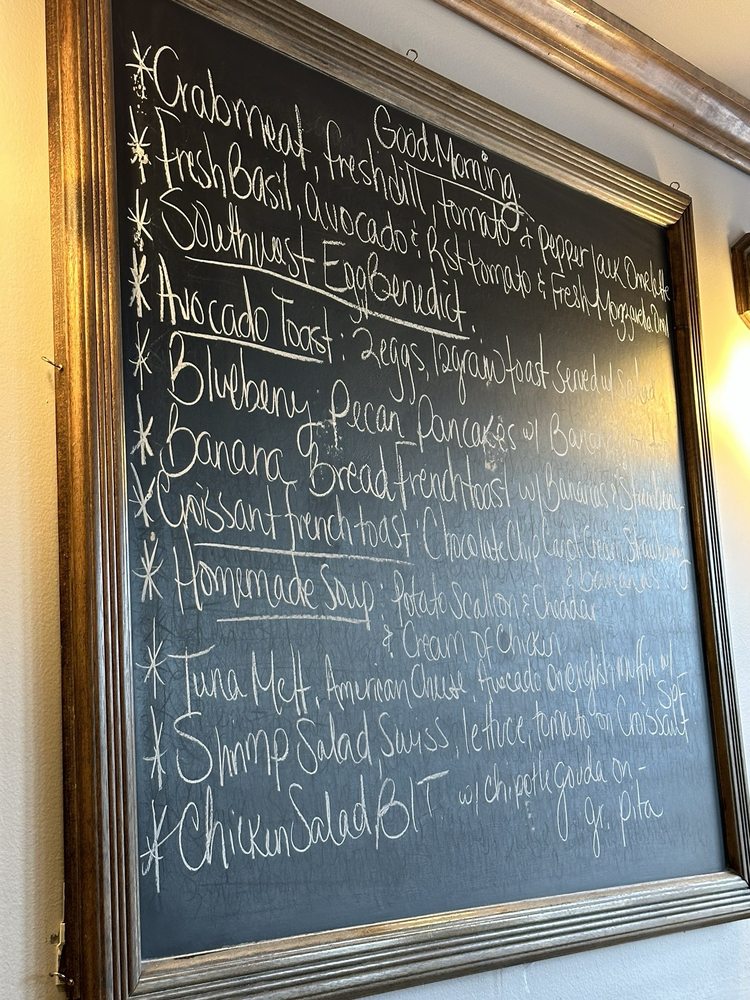 Good Morning
* Crabmeat, fresh dill, tomato & pepper Jack Omelette
* Fresh Basil, avocado & Rst tomato & Fresh Mozzarella Oml
* Southwest Egg Benedict.
* Avocado Toast: 2 eggs, 12 grain toast served w/ salad
* Blueberry Pecan Pancakes w/ Banana
* Banana Bread Frenchtoast w/ Bananas & Strawberry
* Croissant frenchtoast: Chocolate Chip, Strawberry
& banana
* Homemade Soup: Potato Scallion & Cheddar
& Cream of Chicken
* Tuna Melt, American Cheese, Avocado on english muffin w/
* Shrimp Salad, Swiss, lettuce, tomato on Croissant
* Chicken Salad BLT w/ chipotle gouda on -
gr. pita